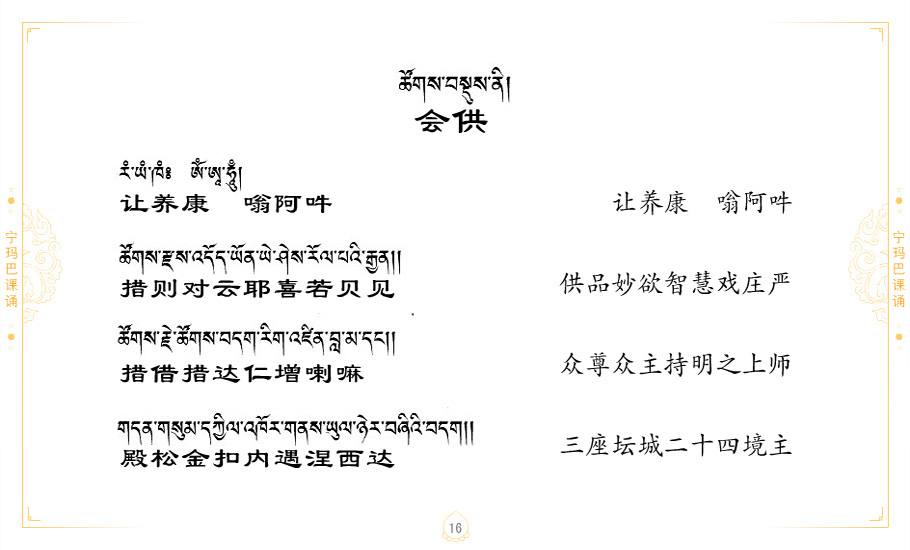 ཚོགས་བསྡུས་ནི།
会供
རཾ་ཡཾ་ཁཾ༔ ཨོཾ་ཨཱཿ་ཧཱུྂ།
让养康 嗡阿吽 让养康 嗡阿吽
ཚོགས་རྫས་འདོད་ཡོན་ཡེ་ཤེས་རོལ་པའི་རྒྱན།།
措则对云耶喜若贝见 供品妙欲智慧戏庄严
ཚོགས་རྗེ་ཚོགས་བདག་རིག་འཛིན་བླ་མ་དང༌།།
措借措达仁增喇嘛 众尊众主持明之上师
གདན་གསུམ་དཀྱིལ་འཁོར་གནས་ཡུལ་ཉེར་བཞིའི་བདག།
殿松金扣内遇涅西达 三座坛城二十四境主
宁玛巴课诵
宁玛巴课诵
16